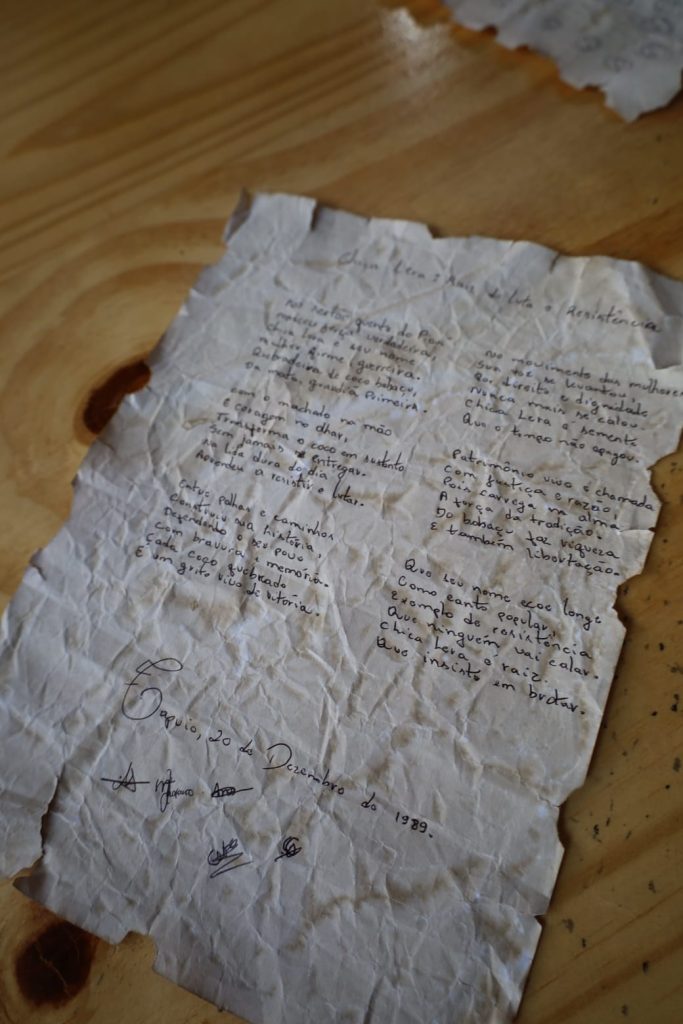 Chica Lera: Mais de Luta e Resistência
No sertão quente do Piauí
nasceu força verdadeira,
Chica Lera é seu nome
mulher firme, guerreira.
Quebradeira de coco babaçu,
da mata, guardiã primeira.
Com o machado na mão
E coragem no olhar,
Transforma o coco em sustento
Sem jamais se entregar.
na lida dura do dia
Aprendeu a resistir e lutar.
Entre palhas e caminhos
Construiu sua história,
Defendendo o seu povo
Com bravura e memória.
Cada coco quebrado
É um grito vivo de vitória.
No movimento das mulheres
Sua voz se levantou,
Por direito e dignidade
Nunca mais se calou.
Chica Lera é semente
Que o tempo não apagou.
Patrimônio vivo é chamada
Com justiça e razão,
Pois carrega na alma
A força da tradição.
Do babaçu faz riqueza
E também libertação.
Que seu nome ecoe longe
Como canto popular,
Exemplo de resistência
Que ninguém vai calar.
Chica Lera é raiz
Que insiste em brotar.
Capuio, 20 de Dezembro de 1989.